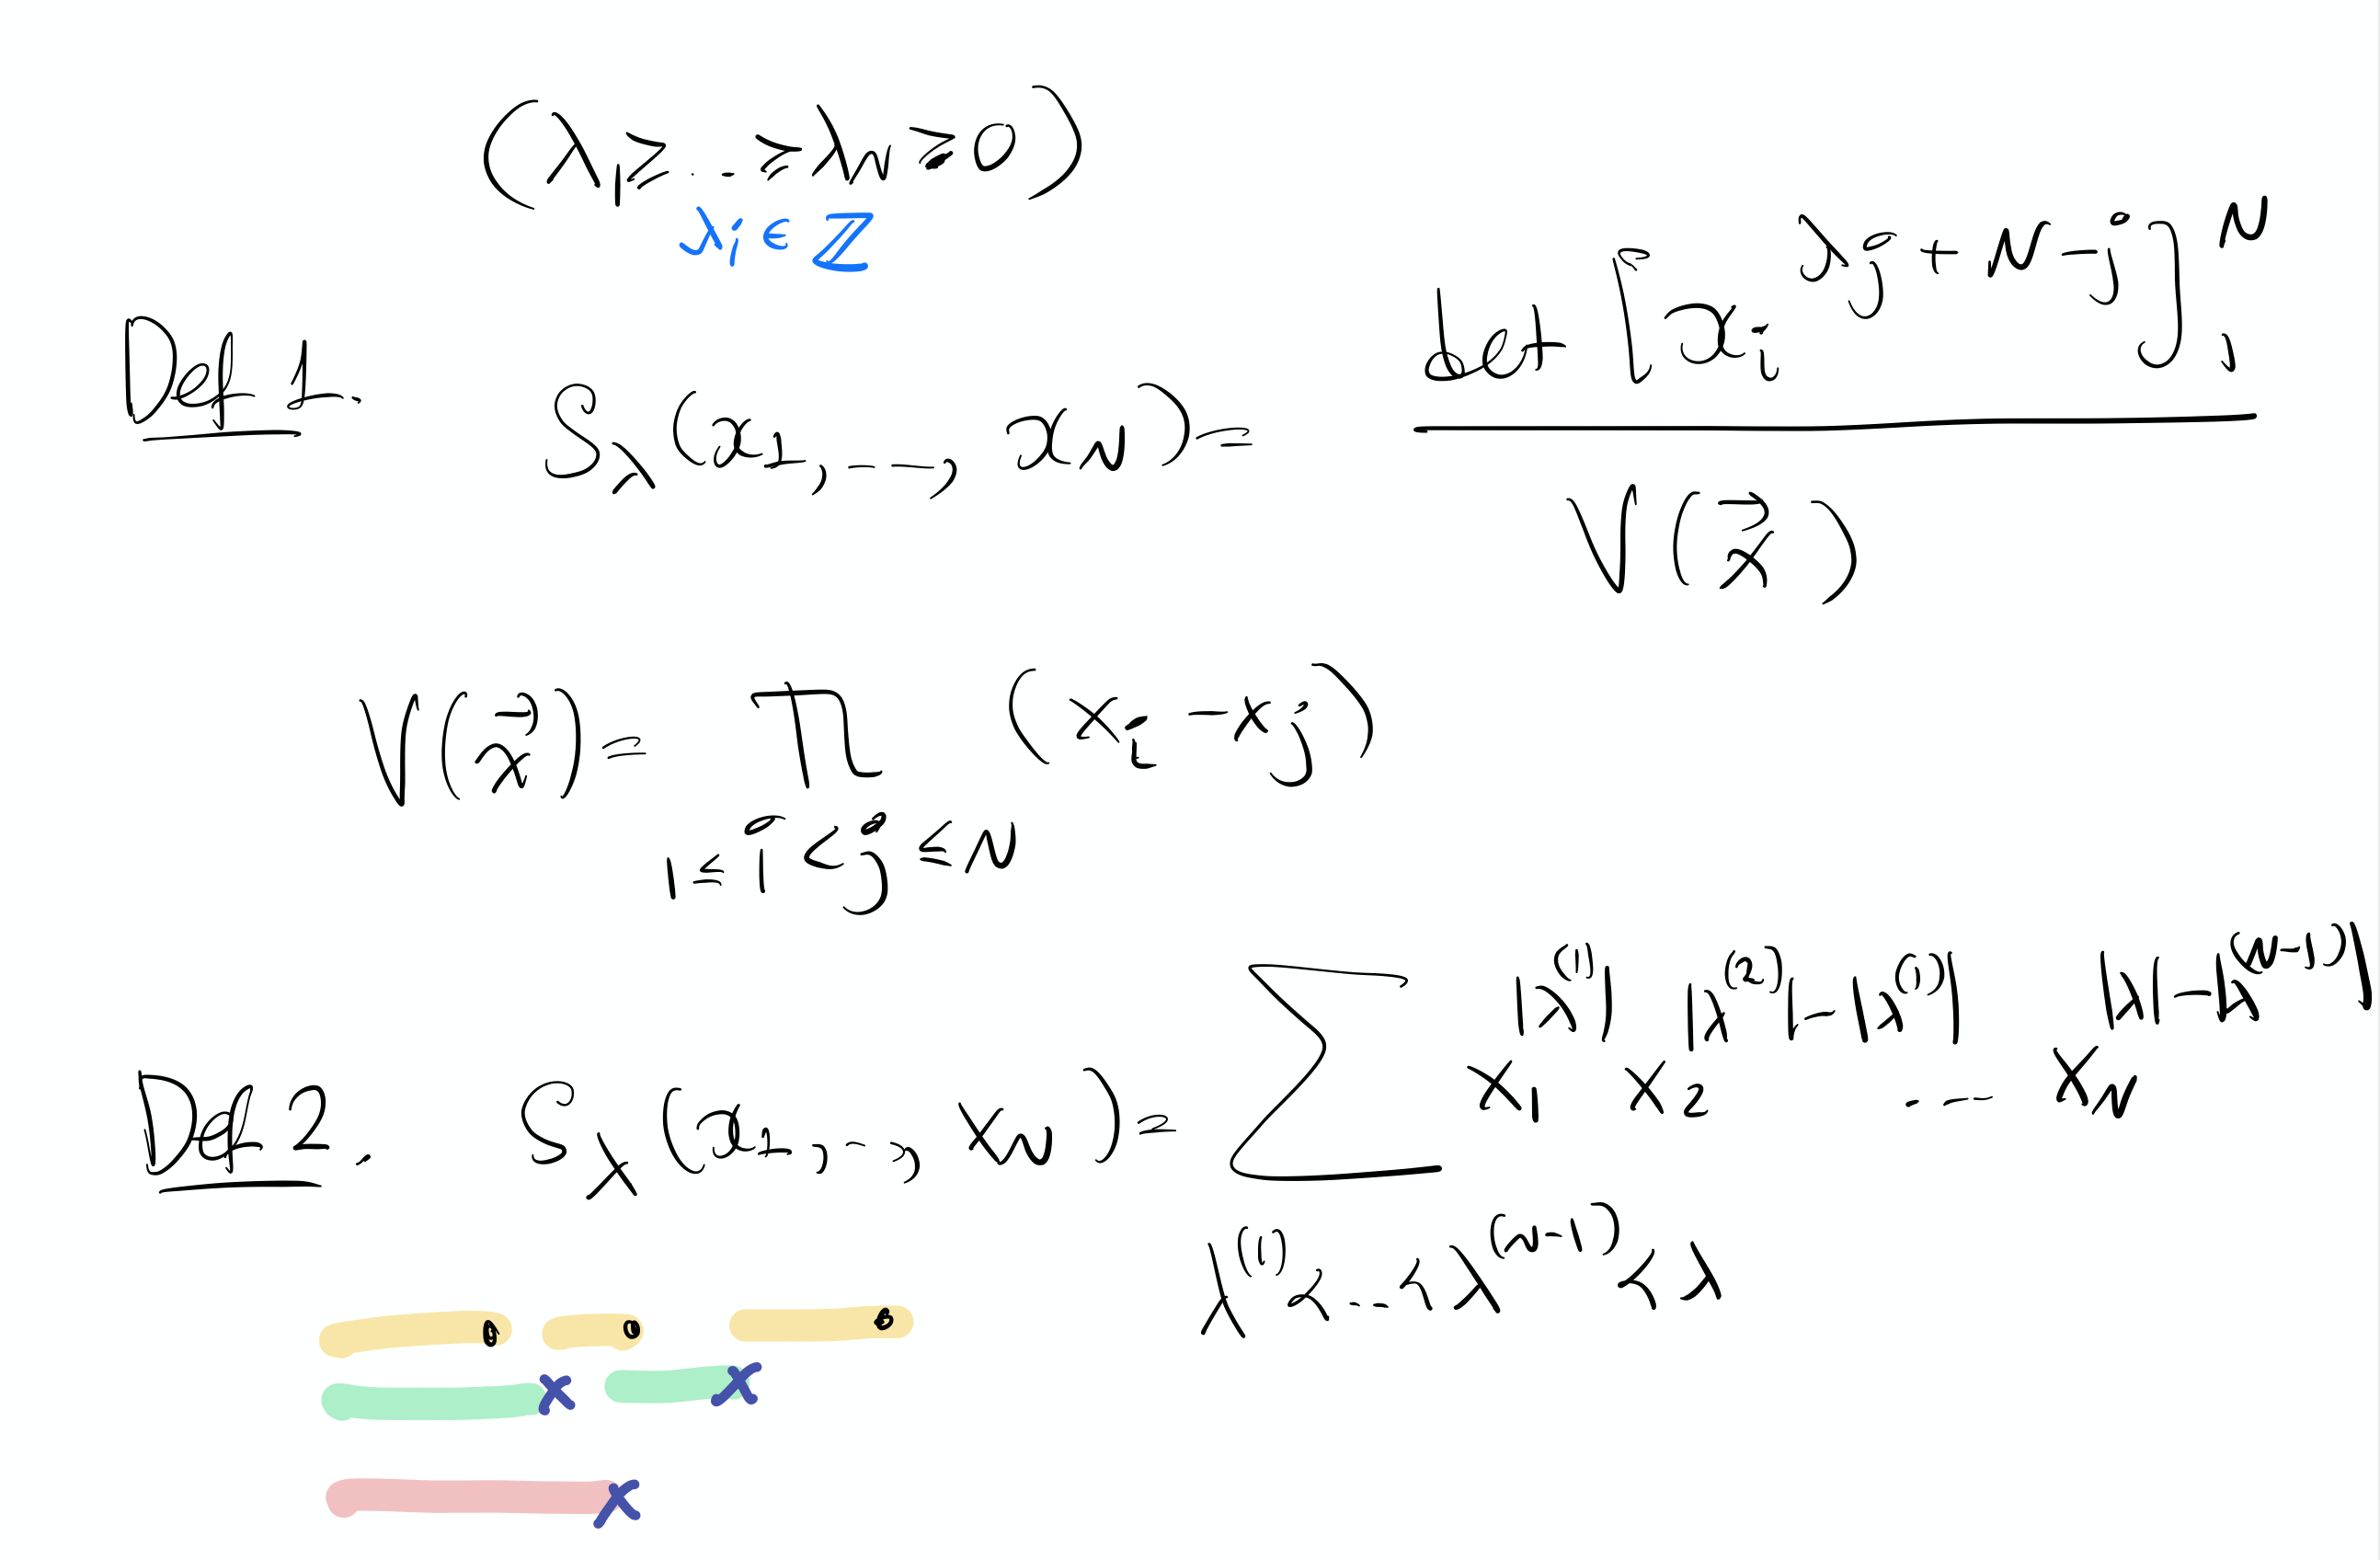 (λ₁ ≥ ... ≥ λ_N ≥ 0)
λᵢ ∈ ℤ
Def 1. S_λ(x₁, --, x_N) = det[xᵢ^{λⱼ + N - j}]^N_{i,j} / V(x⃗)
V(x⃗) = ∏_{1 ≤ i < j ≤ N} (xᵢ - xⱼ)
Def 2. S_λ(x₁, .., x_N) = Σ_{λ^{(1)} ≺ ... ≺ λ^{(N-1)} ≺ λ} x₁^{|λ^{(1)}|} x₂^{|λ^{(2)}| - |λ^{(1)}|} ... x_N^{|λ| - |λ^{(N-1)}|}